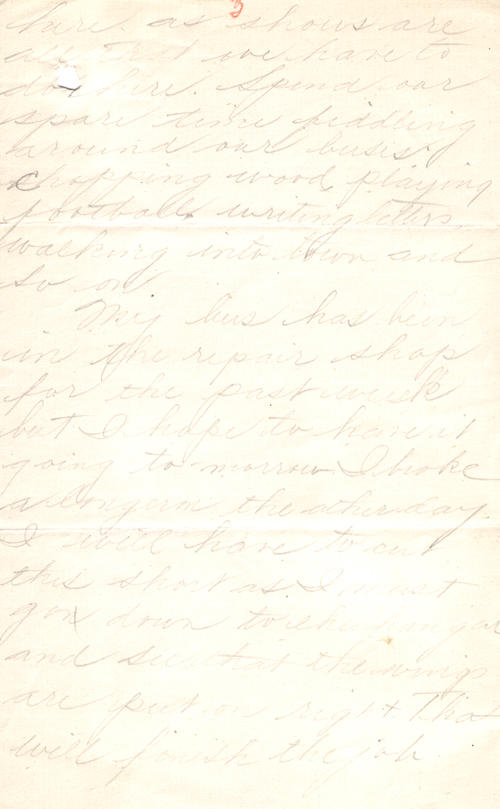 3
here. as shows are
all that we have to
do here. Spend our
spare time fiddling
around our buses
chopping wood, playing
football, writing letters,
walking into town and
so on
My bus has been
in the repair shop
for the past week
but I hope to have it
going to morrow I broke
a longeron the other day.
I will have to cut
this short as I must
go down to the hangar
and see that the wings
are put on right. That
will finish the job